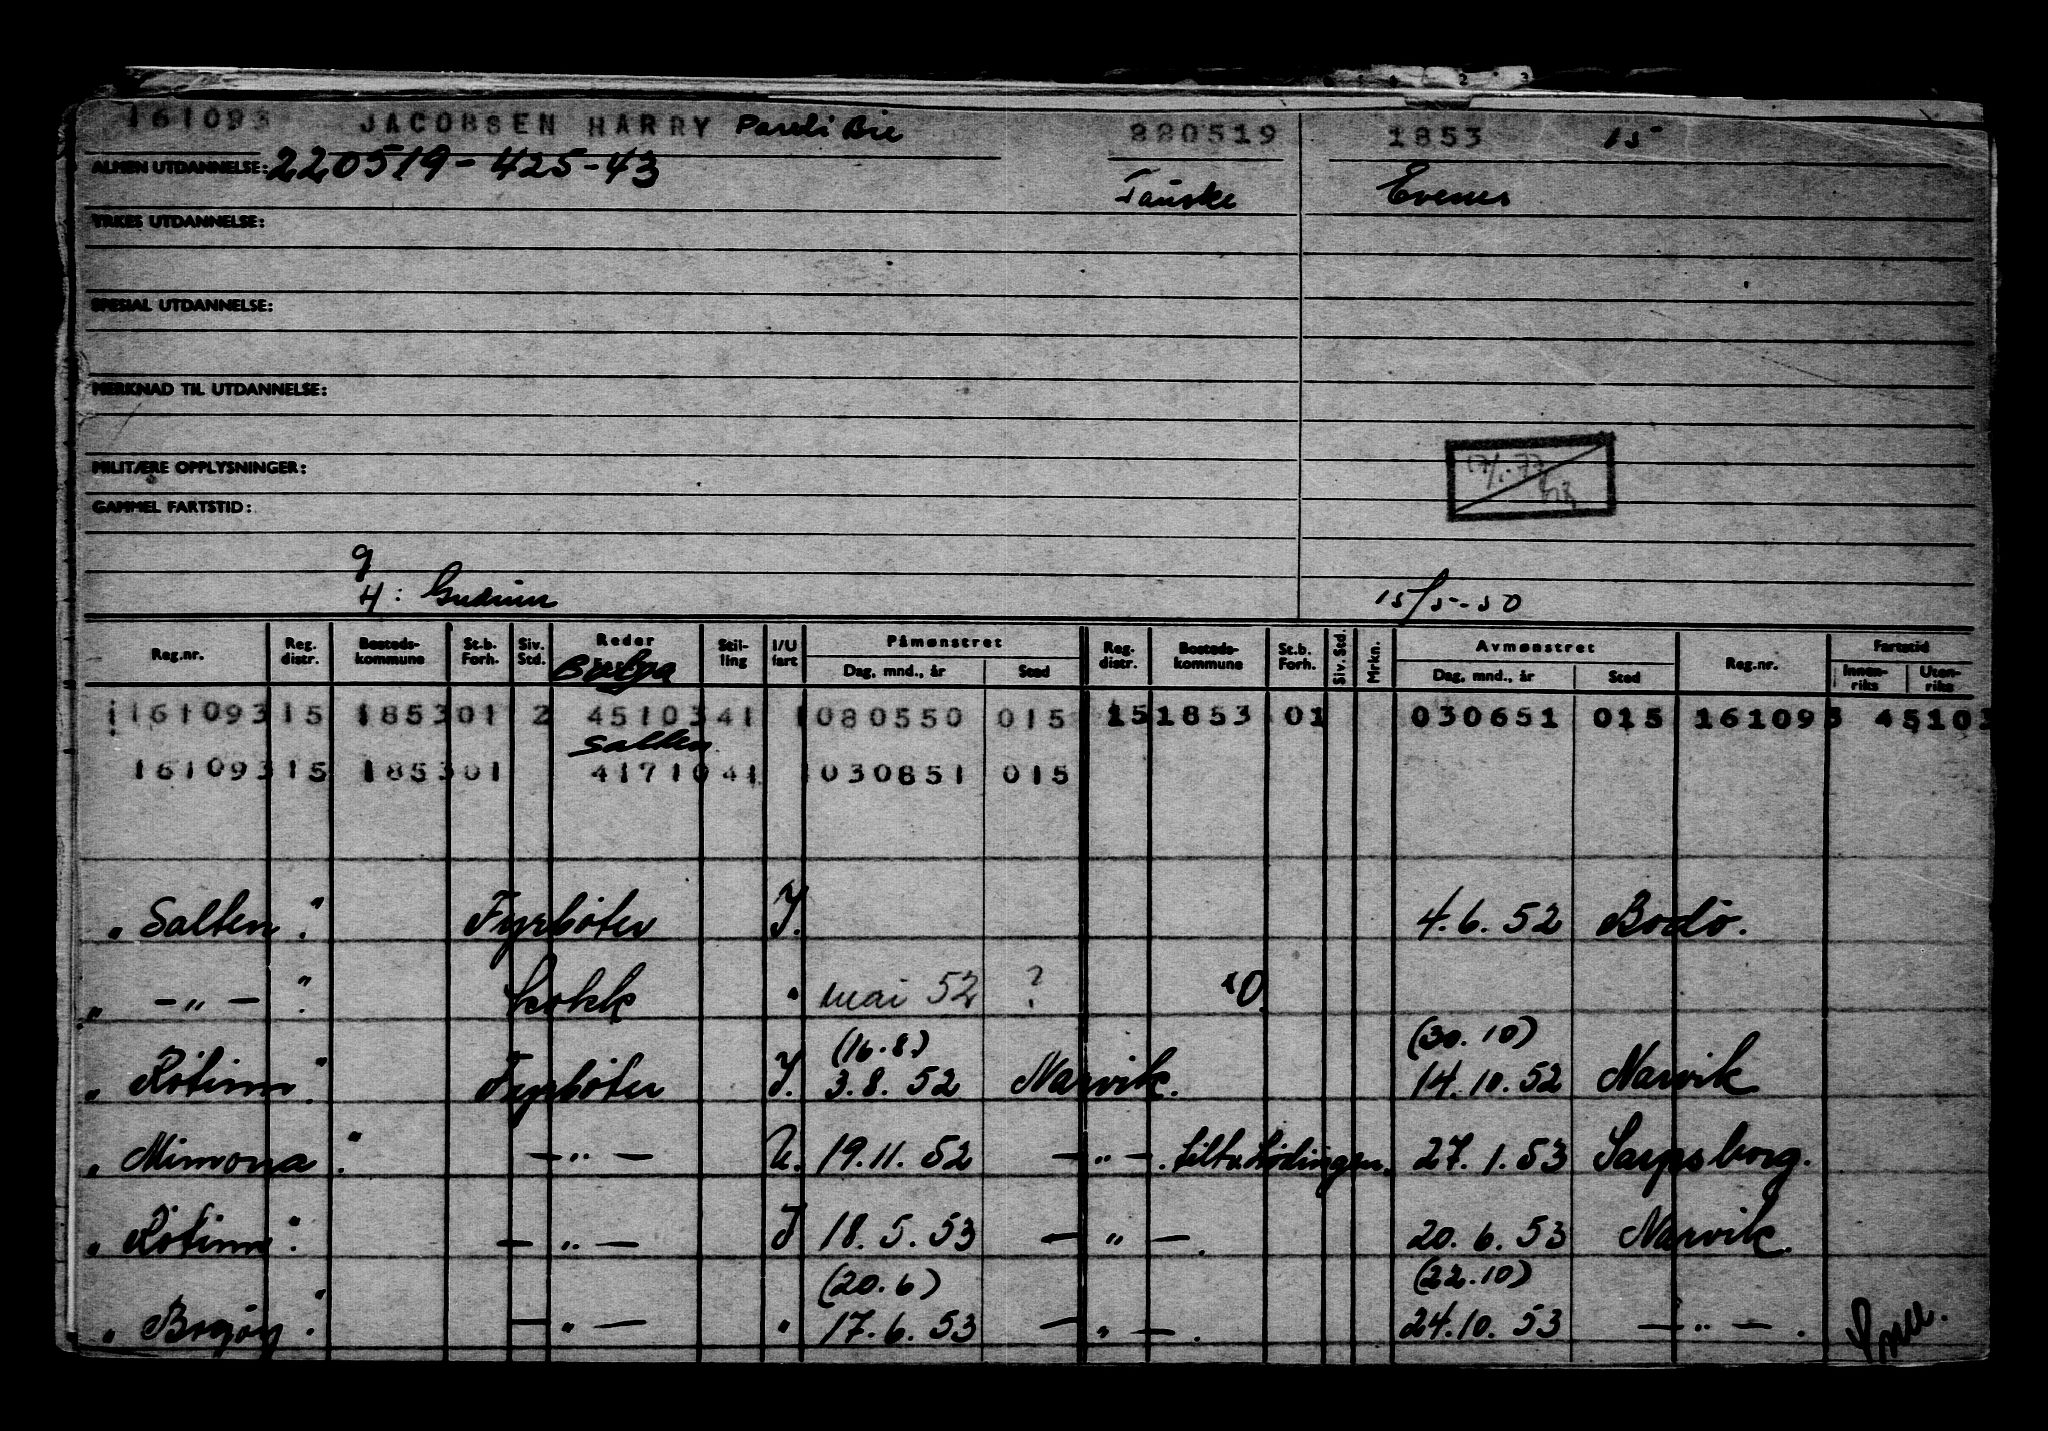 161093 JACOBSEN HARRY Pareli Bie 220519 1853 15
ALMEN UTDANNELSE: 220519-425-43 Fauske Evenes
YRKES UTDANNELSE:
SPESIAL UTDANNELSE:
MERKNAD TIL UTDANNELSE:
MILITÆRE OPPLYSNINGER:
GAMMEL FARTSTID:
g
H: Gudrun 15/5-50
Reg.nr. Reg. distr. Bosteds-kommune St.b. Forh. Siv. Std. Reder Stil-ling I/U fart Påmønstret Dag, mnd., år Sted Reg. distr. Bosteds-kommune St.b. Forh. Siv. Std. Mrkn. Avmønstret Dag, mnd., år Sted Reg.nr. Fartstid Innen-riks Uten-riks
161093 15 1853 01 2 45103 41 1 080550 015 15 1853 01 030651 015 161093 45103
Salten
161093 15 1853 01 41710 41 030851 015
" Salten". Fyrbøter I. 4.6.52 Bodø.
" -"- ". Kokk " mai 52 ? 
(16.8) (30.10)
" Rotinn". Fyrbøter I. 3.8.52 Narvik. 14.10.52 Narvik
" Mimona". -"- U. 19.11.52 -"-. Lødingen. 27.1.53 Sarpsborg.
" Rotinn". -"- I 18.5.53 -"-. 20.6.53 Narvik.
(20.6) (22.10)
" Bogøy". -"- " 17.6.53 -"-. 24.10.53 -"-. Snu.